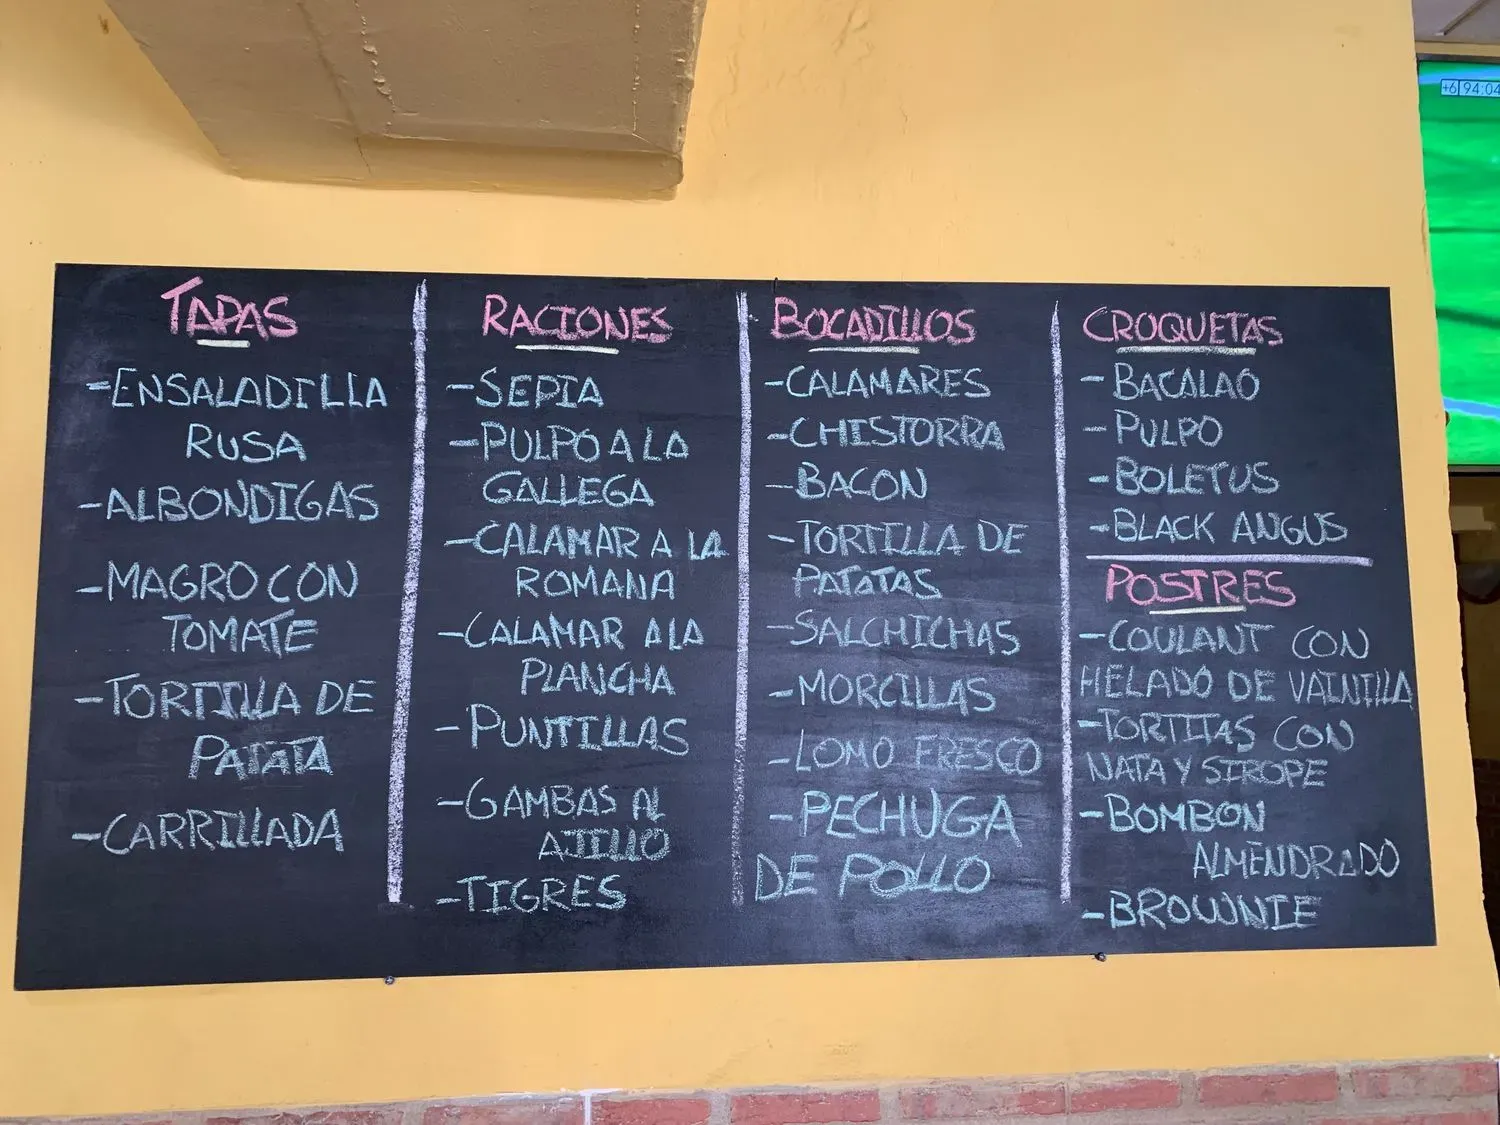 TAPAS
-ENSALADILLA
RUSA
-ALBONDIGAS
-MAGRO CON
TOMATE
-TORTILLA DE
PATATA
-CARRILLADA
RACIONES
-SEPIA
-PULPO A LA
GALLEGA
-CALAMAR A LA
ROMANA
-CALAMAR A LA
PLANCHA
-PUNTILLAS
-GAMBAS AL
AJILLO
-TIGRES
BOCADILLOS
-CALAMARES
-CHISTORRA
-BACON
-TORTILLA DE
PATATAS
-SALCHICHAS
-MORCILLAS
-LOMO FRESCO
-PECHUGA
DE POLLO
CROQUETAS
-BACALAO
-PULPO
-BOLETUS
-BLACK ANGUS
POSTRES
-COULANT CON
HELADO DE VAINILLA
-TORTITAS CON
NATA Y SIROPE
-BOMBON
ALMENDRADO
-BROWNIE
+6 94:04